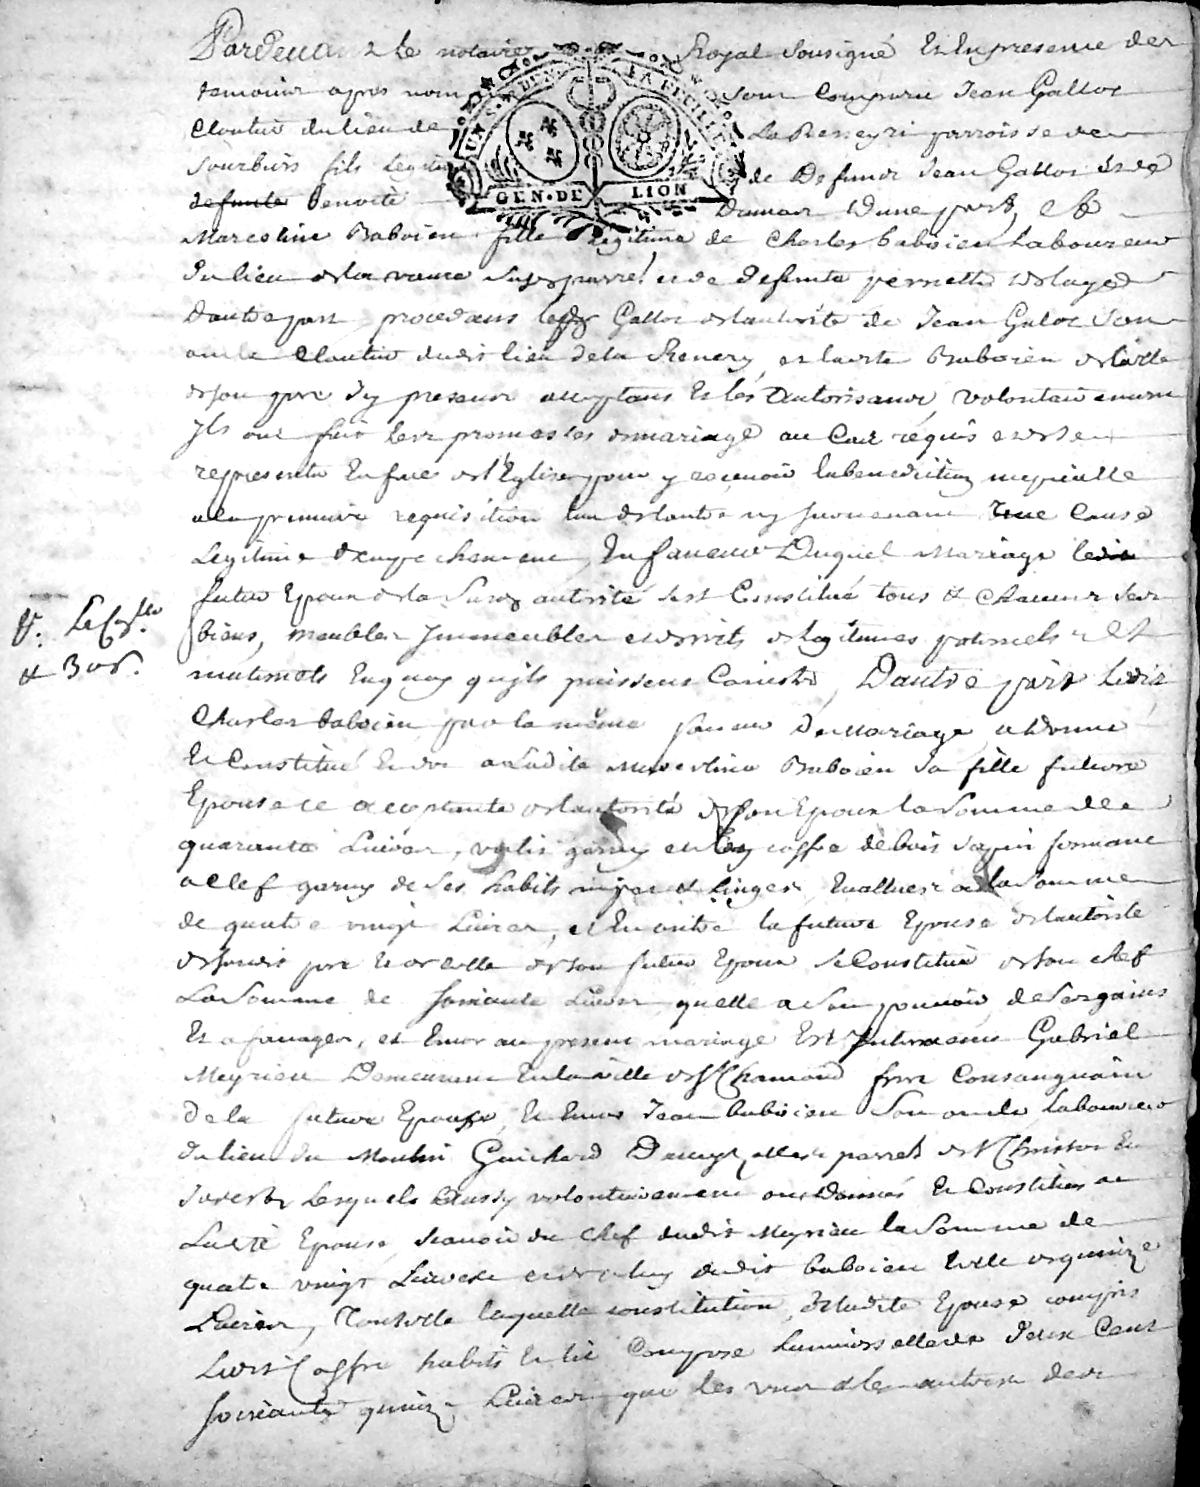 Pardevant le notaire Royal Sousigné Et En presence des
temoins apres nom Sont Comparu Jean Gallot
Cloutier du lieu de La Reneyri parroisse de
Sourbiés fils Legitime de Defunct Jean Gallot et de
defunte Benoite Dumas D'une part, Et
UN S. & DEN. LA FEUILLE
GEN. DE LION
Marceline Baboien fille Legitime de Charles baboien Laboureur
du lieu de la susd parre. et de defunte pernette
Dautre part, procedans ledt Gallot de lautorité de Jean Galot Son
oncle Cloutier dudit lieu de la Renery, et ladte Baboien de celle
de son pere icy present acceptans Et les Autorisant, volontairement
Ils ont fait leur promesses de mariage au Cas requis et de se
representer En face de l'Eglise pour y recevoir la benediction nuptialle
a la premiere requisition lun de lautre ny survenant Cause
Legitime d'empechement, En faveur Duquel Mariage ledit
futur Epoux de la Susd autorité sest Constitué tous & Chacuns ses
biens, meubles Immeubles et droits legitimes paternels Et
maternels En quoy quils puissent Consister, Dautre part Ledit
V. Le
& 3 0s.
Charles baboien par la même faveur De Mariage, a Donné
Et Constitué En dot a Ladite Marceline Baboien Sa fille future
Epouse ce acceptante de lautorité de son Epoux la Somme de
quarante Livres, un lit garny et un coffre de bois sapin fermant
a clef garny de ses habits & Linges Evalués a la Somme
de quatre vingt Livres, et En outre la future Epouse de lautorité
de sondit pere Et de celle de son futur Epoux Se Constitue de son chef
La Somme de soixante Livres quelle a en Son pouvoir de Ses gains
Et epargnes, et Encor au present mariage Est Intervenu Gabriel
Meyrieu Demeurant En la ville de St Chamond frere Consanguin
de la future Epouse, Et Encor Jean baboien Son oncle Laboureur
du lieu du Moulin Guichard parroisse de St Christot En
Jarest, Lesquels aussy volontairement ont Donnés Et Constitués a
Ladte Epouse, Scavoir du Chef dudit Meyrieu la Somme de
quatre vingt Livres et de celuy dudit baboien celle de quinze
Livres, Toutte laquelle constitution de ladite Epouse compris
Ledit Coffre habits Et lit Compose la universelle de Deux Cent
soixante quinze Livres que les uns & les autres des